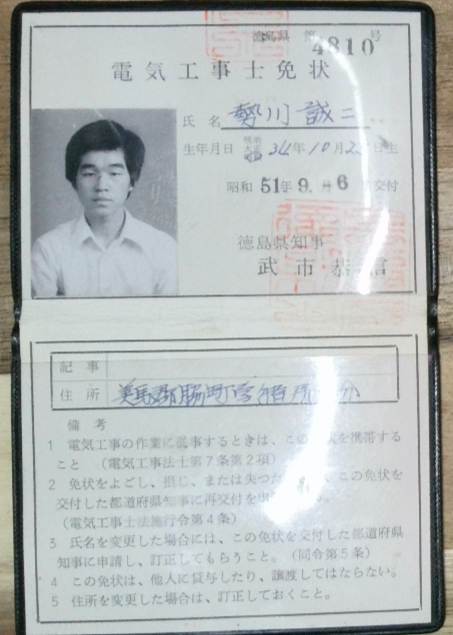 徳島県 第4810号
電気工事士免状
氏名 勢川 誠二
生年月日 明治 大正 34年10月2 日生
昭和51年9月6日交付
徳島県知事
武市恭信
記事
住所 美馬郡脇町字
備考
1 電気工事の作業に従事するときは、この免状を携帯する
こと (電気工事法士第7条第2項)
2 免状をよごし、損じ、または失つた 、この免状を
交付した都道府県知事に再交付を
(電気工事士法施行令第4条)
3 氏名を変更した場合には、この免状を交付した都道府県
知事に申請し、訂正してもらうこと。(同令第5条)
4 この免状は、他人に貸与したり、譲渡してはならない。
5 住所を変更した場合は、訂正しておくこと。